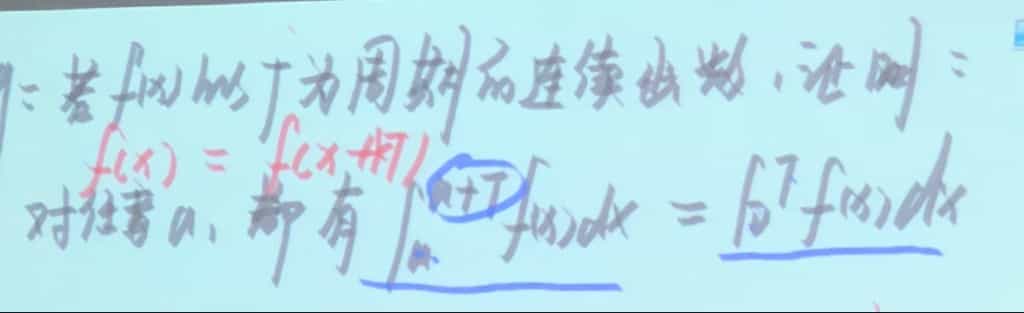 例:若f(x)以T为周期的连续函数,证明:
f(x) = f(x+kT)
对任意a,都有∫ₐ^{a+T} f(x)dx = ∫₀^T f(x)dx